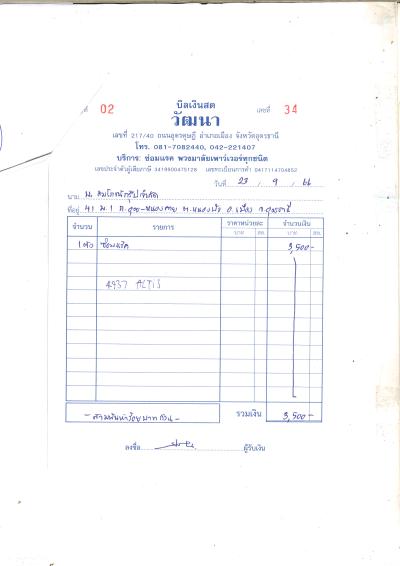 ที่ 02 บิลเงินสด เลขที่ 34
วัฒนา
เลขที่ 217/40 ถนนอุดรดุษฎี อำเภอเมือง จังหวัดอุดรธานี
โทร. 081-7082440, 042-221407
บริการ: ซ่อมแรค พวงมาลัยเพาว์เวอร์ทุกชนิด
เลขประจำตัวผู้เสียภาษี 3419900475128 เลขทะเบียนการค้า 0417114704852
วันที่ 23 / 9 / 66
นาม
ที่อยู่ 41 ม.1 ถ.อุดร-หนองคาย ต.หมากแข้ง อ.เมือง จ.อุดรธานี
จำนวน รายการ ราคาหน่วยละ จำนวนเงิน
บาท สต. บาท สต.
1 ตัว ซ่อมแร็ค 3,500-
4937 ALTIS
-สามพันห้าร้อยบาทถ้วน- รวมเงิน 3,500-
ลงชื่อ ผู้รับเงิน